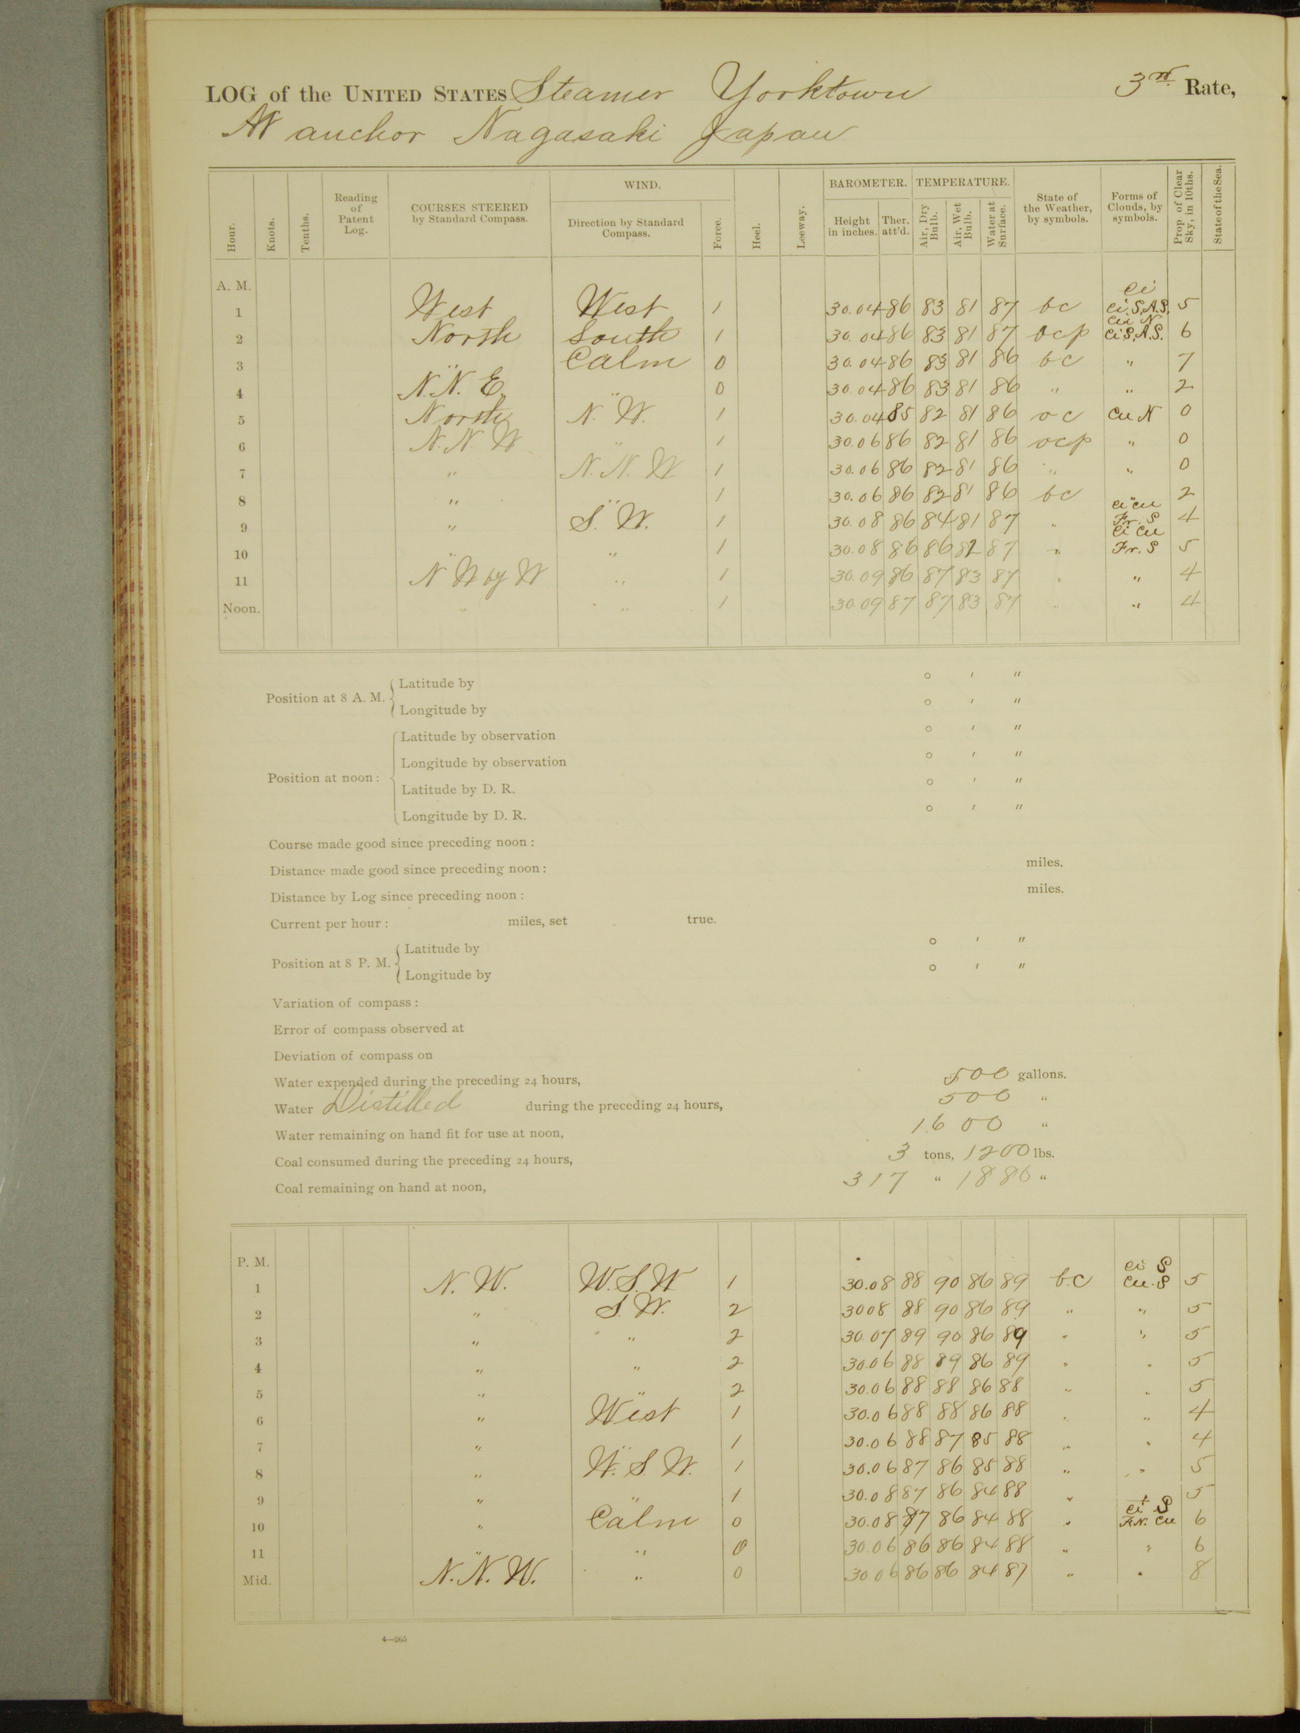 LOG of the UNITED STATES Steamer Yorktown 3rd Rate,
At anchor Nagasaki Japan
Hour. Knots. Tenths. Reading of Patent Log. COURSES STEERED by Standard Compass. WIND. Direction by Standard Compass. Force. Heel. Leeway. BAROMETER. Height in inches. Ther. att'd. TEMPERATURE. Air, Dry Bulb. Air, Wet Bulb. Water at Surface. State of the Weather, by symbols. Forms of Clouds, by symbols. Prop. of Clear Sky, in 10ths. State of the Sea.
A. M. ci
1 West West 1 30.04 86 83 81 87 bc ci.S.A.S. 5
cu N
2 North South 1 30.04 86 83 81 87 bcp ci S.A.S. 6
3 " Calm 0 30.04 86 83 81 86 bc " 7
4 N.N.E. " 0 30.04 86 83 81 86 " " 2
5 North N.W. 1 30.04 85 82 81 86 oc cu N 0
6 N.N.W " 1 30.06 86 82 81 86 ocp " 0
7 " N.N.W 1 30.06 86 82 81 86 " " 0
8 " " 1 30.06 86 82 81 86 bc " 2
ci cu
9 " S.W. 1 30.08 86 84 81 87 " Fr. S 4
ci cu
10 " " 1 30.08 86 86 82 87 " Fr. S 5
11 N W by W " 1 30.09 86 87 83 87 " " 4
Noon. " " 1 30.09 87 87 83 87 " " 4
Position at 8 A. M. Latitude by ° ′ ″
Longitude by ° ′ ″
Latitude by observation ° ′ ″
Longitude by observation ° ′ ″
Position at noon:
Latitude by D. R. ° ′ ″
Longitude by D. R. ° ′ ″
Course made good since preceding noon:
Distance made good since preceding noon: miles.
Distance by Log since preceding noon: miles.
Current per hour: miles, set true.
Position at 8 P. M. Latitude by ° ′ ″
Longitude by ° ′ ″
Variation of compass:
Error of compass observed at
Deviation of compass on
Water expended during the preceding 24 hours, 500 gallons.
Water Distilled during the preceding 24 hours, 500 "
Water remaining on hand fit for use at noon, 1600 "
Coal consumed during the preceding 24 hours, 3 tons, 1200 lbs.
Coal remaining on hand at noon, 317 " 1880 "
P. M. ci S
1 N.W. W.S.W 1 30.08 88 90 86 89 b.c cu.S 5
2 " S.W. 2 3008 88 90 86 89 " " 5
3 " " 2 30.07 89 90 86 89 " " 5
4 " " 2 30.06 88 89 86 89 " " 5
5 " " 2 30.06 88 88 86 88 " " 5
6 " West 1 30.06 88 88 86 88 " " 4
7 " " 1 30.06 88 87 85 88 " " 4
8 " W.S.W. 1 30.06 87 86 85 88 " " 5
9 " " 1 30.08 87 86 84 88 " " 5
ci S
10 " Calm 0 30.08 87 86 84 88 " Fr. cu 6
11 " " 0 30.06 86 86 84 88 " " 6
Mid. N.N.W. " 0 30.06 86 86 84 87 " " 8
4—265